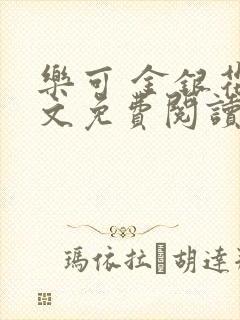 樂可 金銀花
文免費閱讀
瑪依拉 胡達